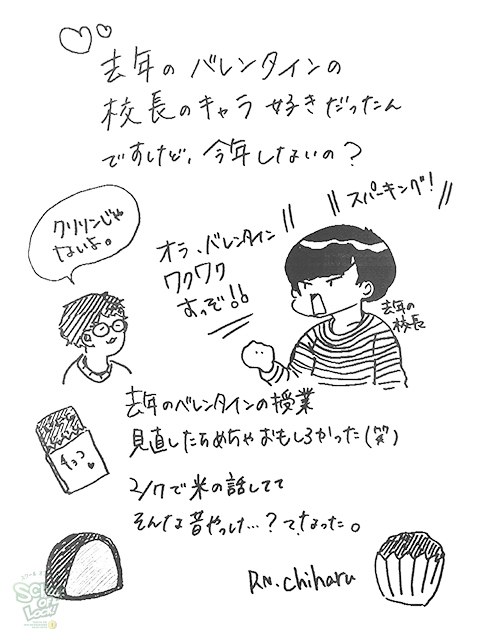 去年の バレンタインの
校長のキャラ 好きだったん
ですけど、今年しないの？
クリリンじゃ
ないよ。
スパーキング！
オラ、バレンタイン
ワクワク
すっぞ!!
去年の
校長
去年のバレンタインの授業
見直したらめちゃおもしろかった(笑)
チョコ
2/7で米の話してて
そんな昔やっけ…？てなった。
RN. chiharu
SCHOOL
OF
LOCK!